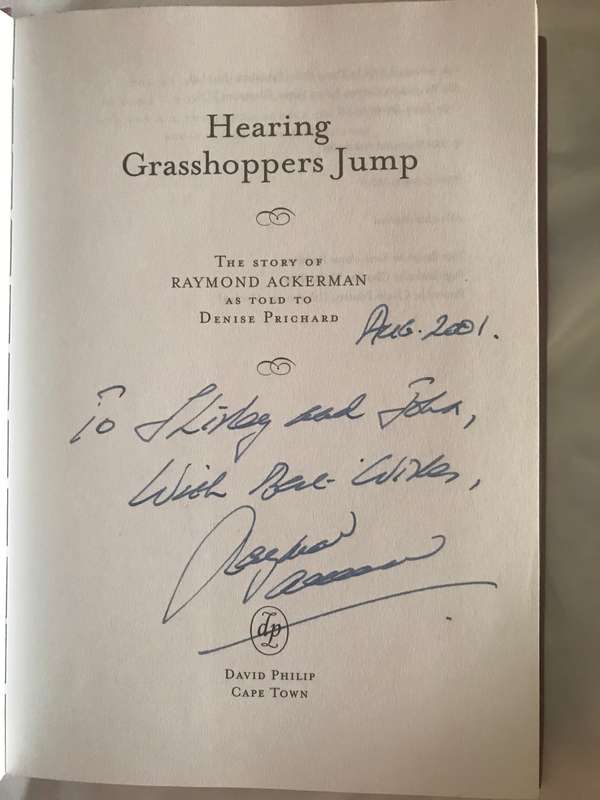 Hearing
Grasshoppers Jump
THE STORY OF
RAYMOND ACKERMAN
AS TOLD TO
DENISE PRICHARD
Aug. 2001.
To Shirley and John,
With Best Wishes,
Raymond
Ackerman
dp
DAVID PHILIP
CAPE TOWN